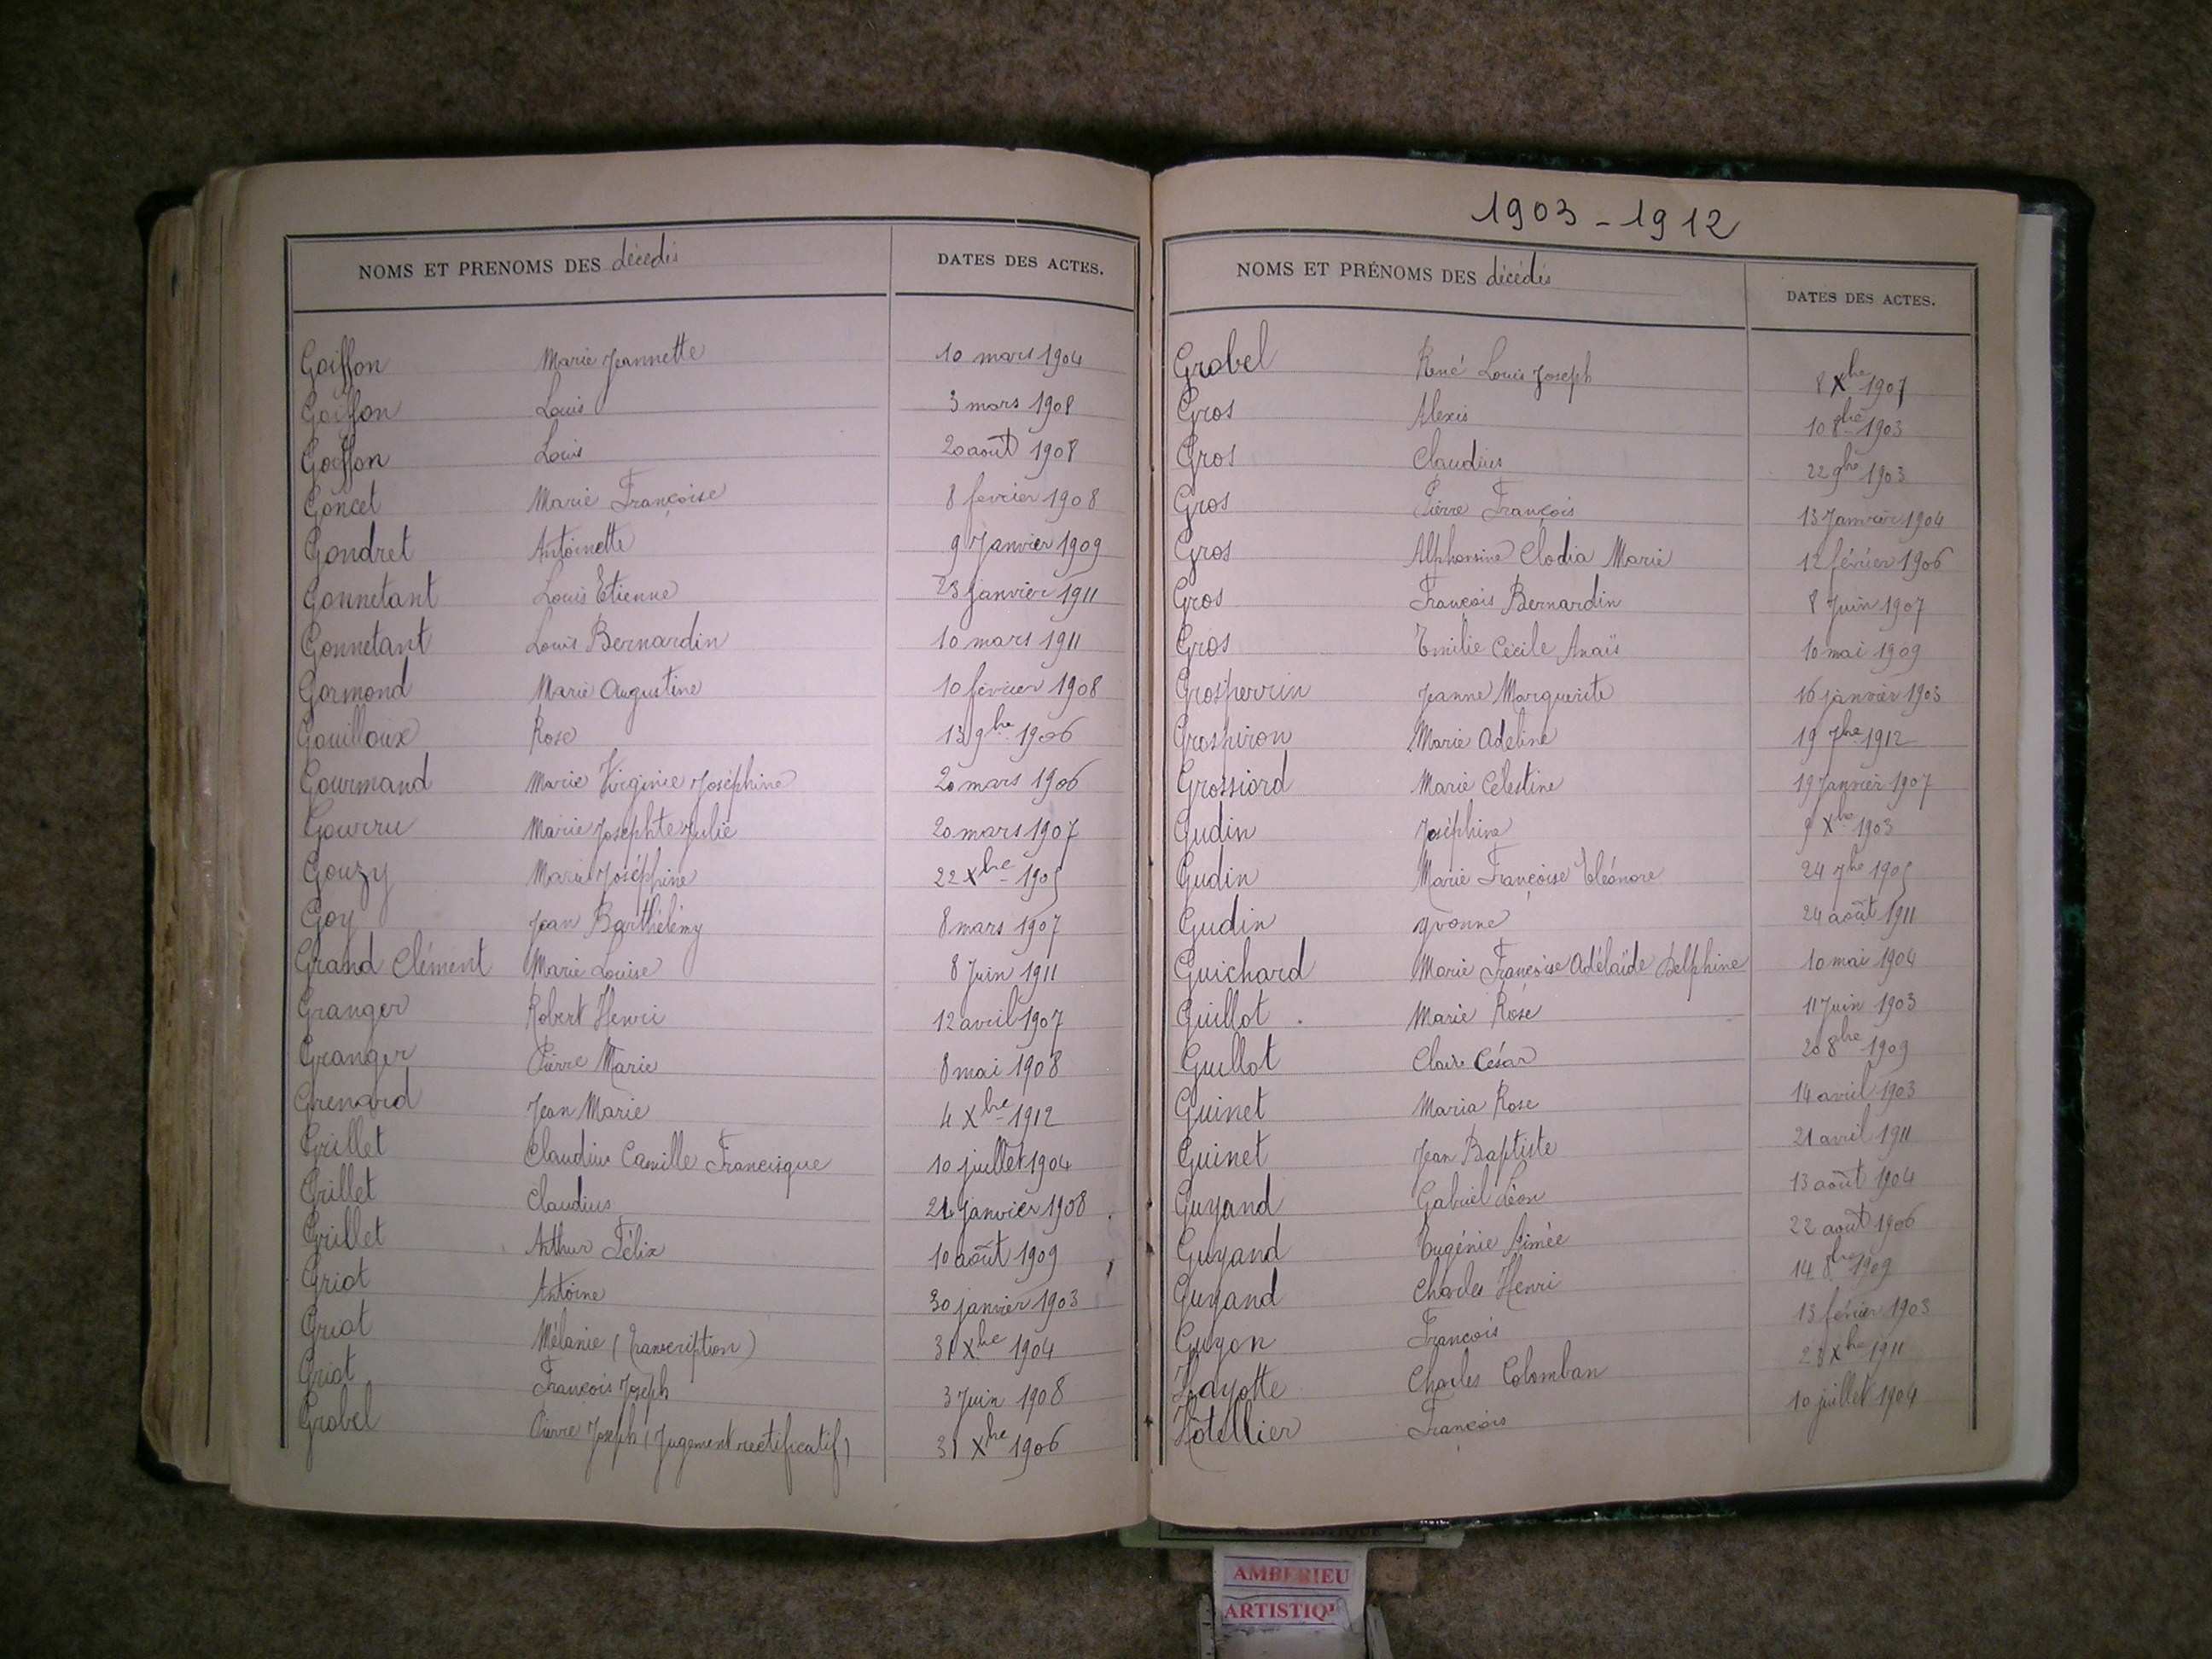 NOMS ET PRENOMS DES décédés DATES DES ACTES.
Goiffon Marie Jeannette 10 mars 1904
Goiffon Louis 3 mars 1908
Goiffon Louis 20 août 1908
Goncet Marie Françoise 8 fevrier 1908
Gondret Antoinette 9 Janvier 1909
Gonnetant Louis Etienne 23 janvier 1911
Gonnetant Louis Bernardin 10 mars 1911
Gormond Marie Augustine 10 février 1908
Gouilloux Rose 13 9bre 1906
Gourmand Marie Virginie Joséphine 20 mars 1906
Gourru Marie Josephte Julie 20 mars 1907
Gouzy Marie Joséphine 22 Xbre 1905
Goy Jean Barthélémy 8 mars 1907
Grand Clément Marie Louise 8 Juin 1911
Granger Robert Henri 12 avril 1907
Granger Pierre Marie 8 mai 1908
Grenard Jean Marie 4 Xbre 1912
Grillet Claudius Camille Francisque 10 juillet 1904
Grillet Claudius janvier 1908
Grillet Arthur Félix 10 août 1909
Griot Antoine 30 janvier 1903
Griot Mélanie (transcription) 31 Xbre 1904
Griot François Joseph 3 Juin 1908
Grobel Pierre Joseph (Jugement rectificatif) 31 Xbre 1906
1903 - 1912
NOMS ET PRÉNOMS DES décédés DATES DES ACTES.
Grobel René Louis Joseph 8 Xbre 1907
Gros Alexis 10 8bre 1903
Gros Claudius 22 9bre 1903
Gros Pierre François 13 Janvier 1904
Gros Alphonsine Clodia Marie 12 février 1906
Gros François Bernardin 8 Juin 1907
Gros Emilie Cécile Anaïs 10 mai 1909
Grosperrin Jeanne Marguerite 16 janvier 1903
Grospiron Marie Adeline 19 7bre 1912
Grossiord Marie Célestine 19 Janvier 1907
Gudin Joséphine 9 Xbre 1903
Gudin Marie Françoise Eléonore 24 7bre 1905
Gudin Yvonne 24 août 1911
Guichard Marie Françoise Adélaïde Delphine 10 mai 1904
Guillot Marie Rose 11 Juin 1903
Guillot Claude César 20 8bre 1909
Guinet Maria Rose 14 avril 1903
Guinet Jean Baptiste 21 avril 1911
Guyand Gabriel Léon 13 août 1904
Guyand Eugénie Aimée 22 août 1906
Guyand Charles Henri 14 8bre 1909
Guyon François 13 février 1903
Hayotte Charles Colomban Xbre 1911
Hôtellier François 10 juillet 1904
AMBERIEU
ARTISTIQU